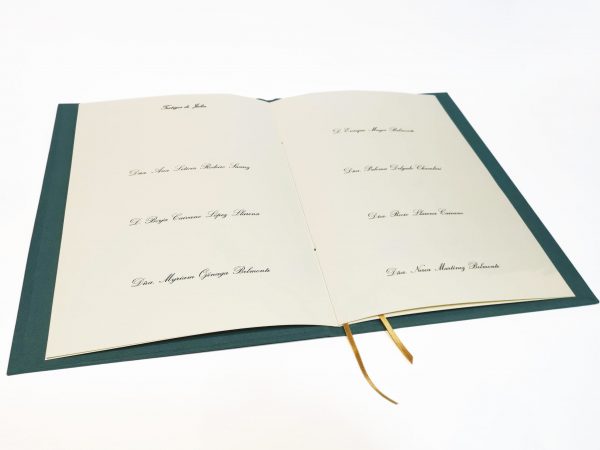 Testigos de Julia
Dña. Ana Leticia Rochiro
D. Borja Caivano López Llorens
Dña. Myriam Belmonte
D. Enrique Moya Belmonte
Dña. Paloma Delgado
Dña. Rocío Llorens Caivano
Dña. Nuria Martínez Belmonte